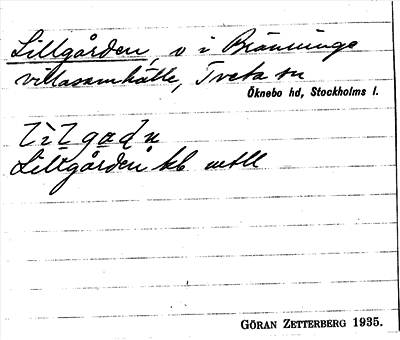 Lillgården, v i Bränninge
villasamhälle, Tveta sn
Öknebo hd, Stockholms l.
Lillgården
GÖRAN ZETTERBERG 1935.